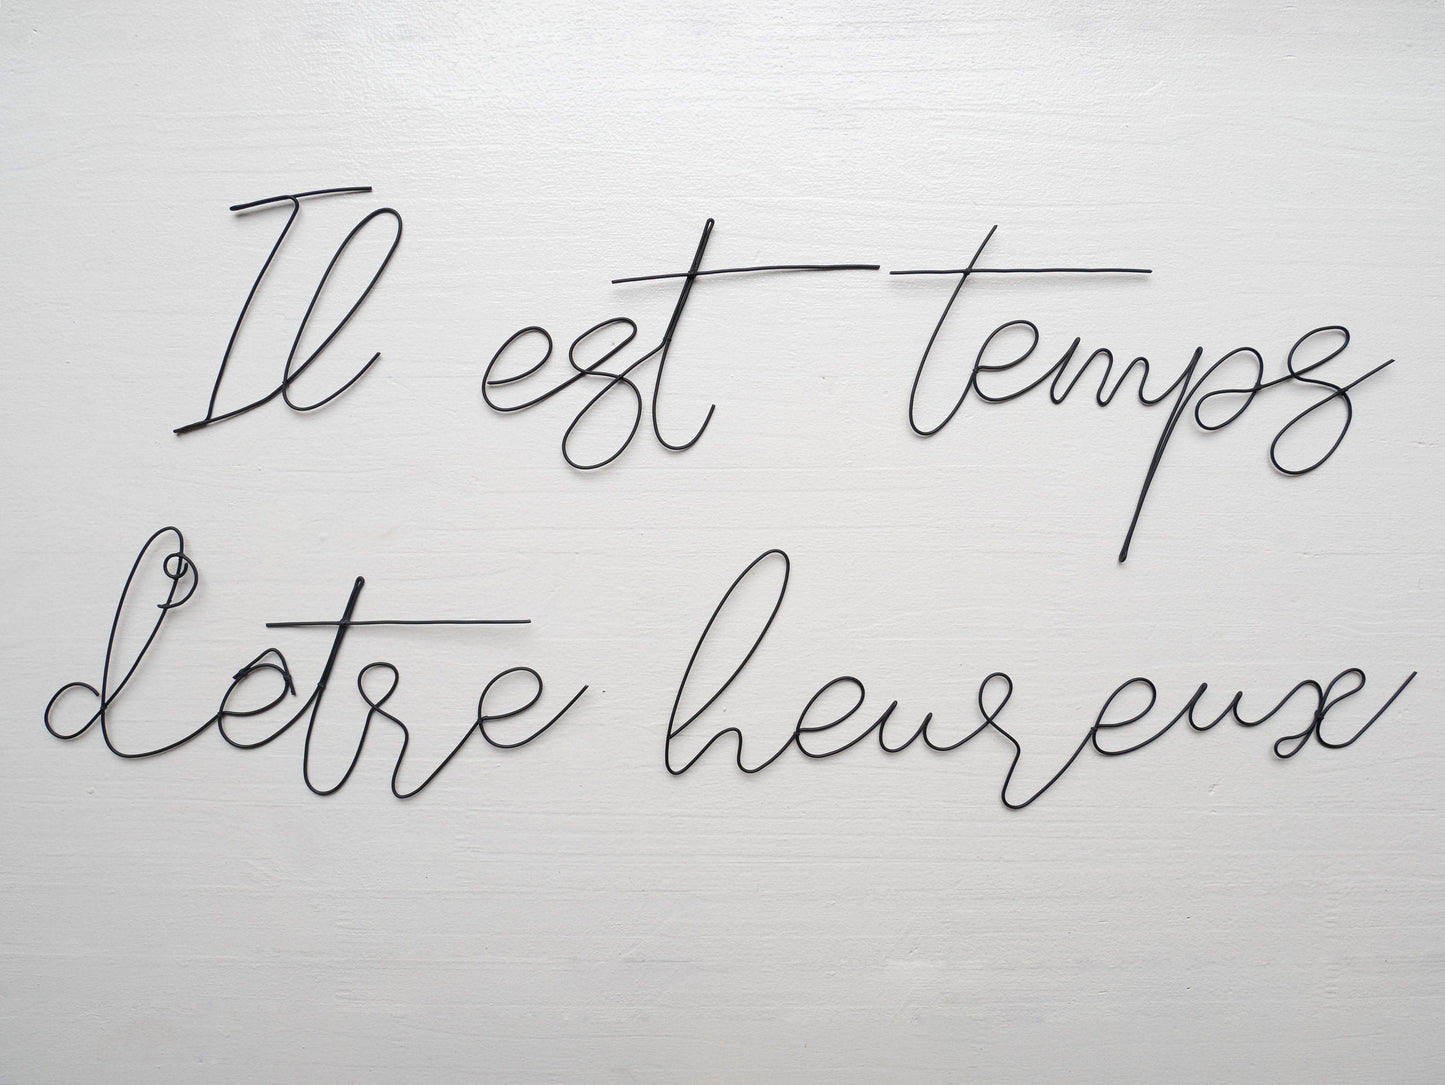 Il est temps
d'être heureux